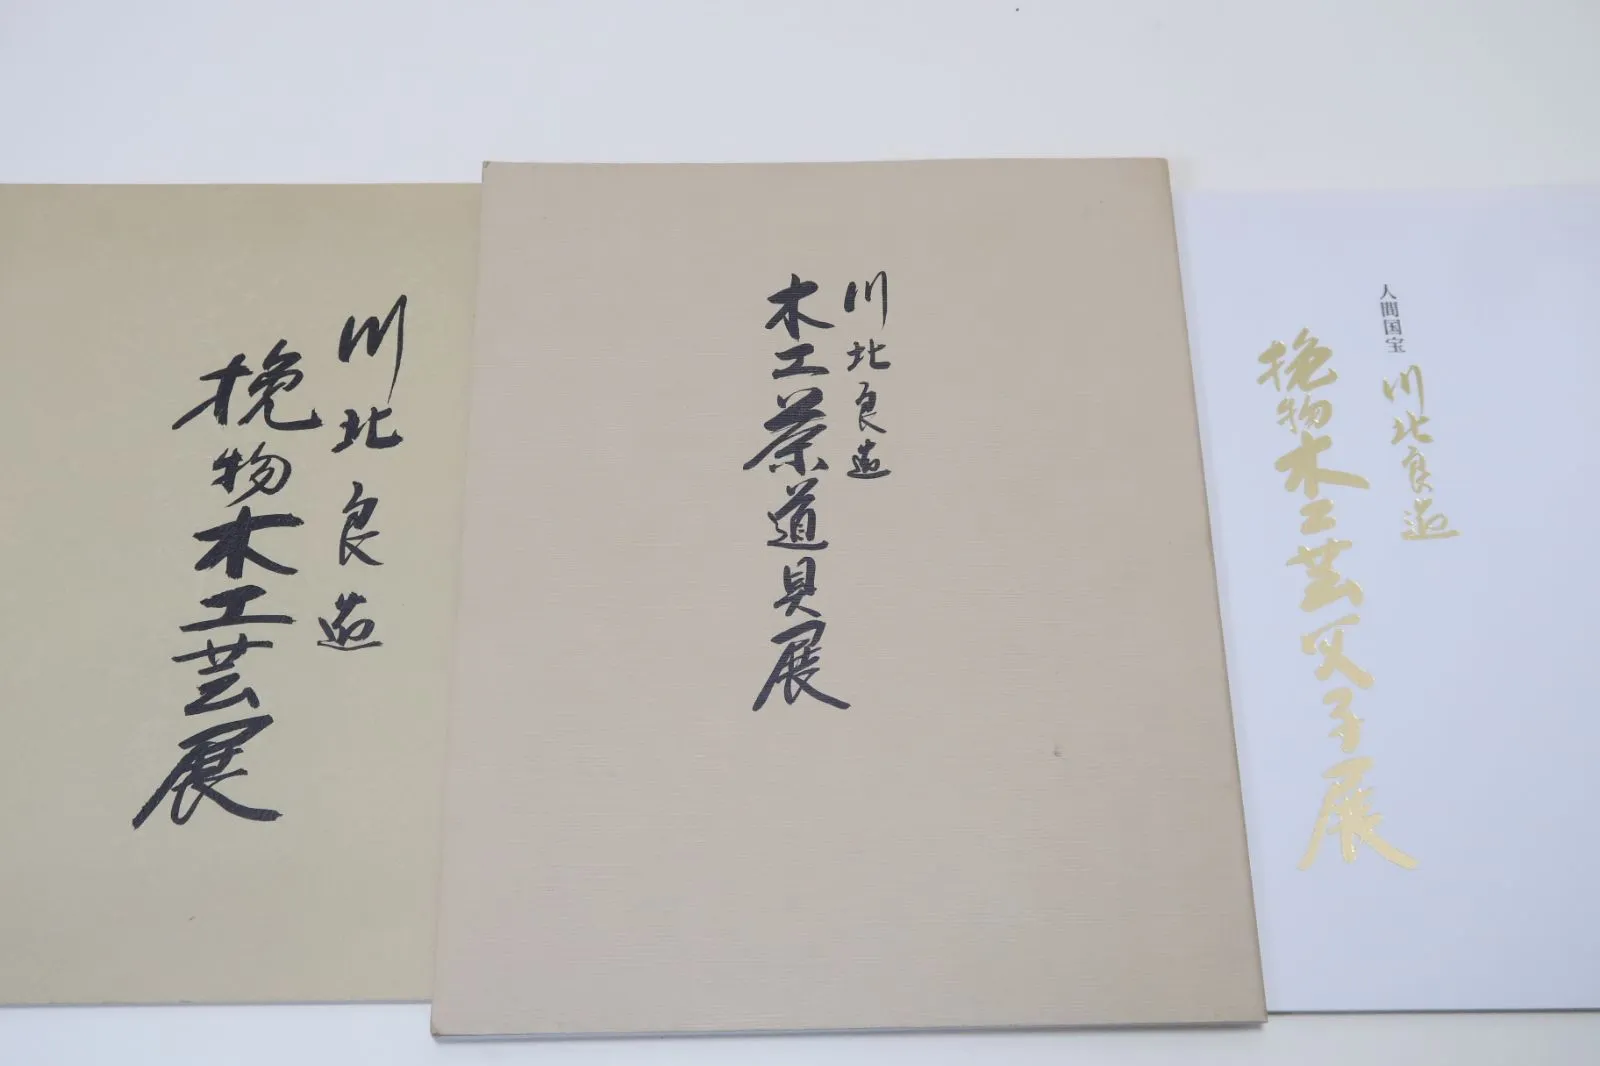 川北良造
挽物木工芸展
川北良造
木工茶道具展
人間国宝 川北良造
挽物木工芸父子展